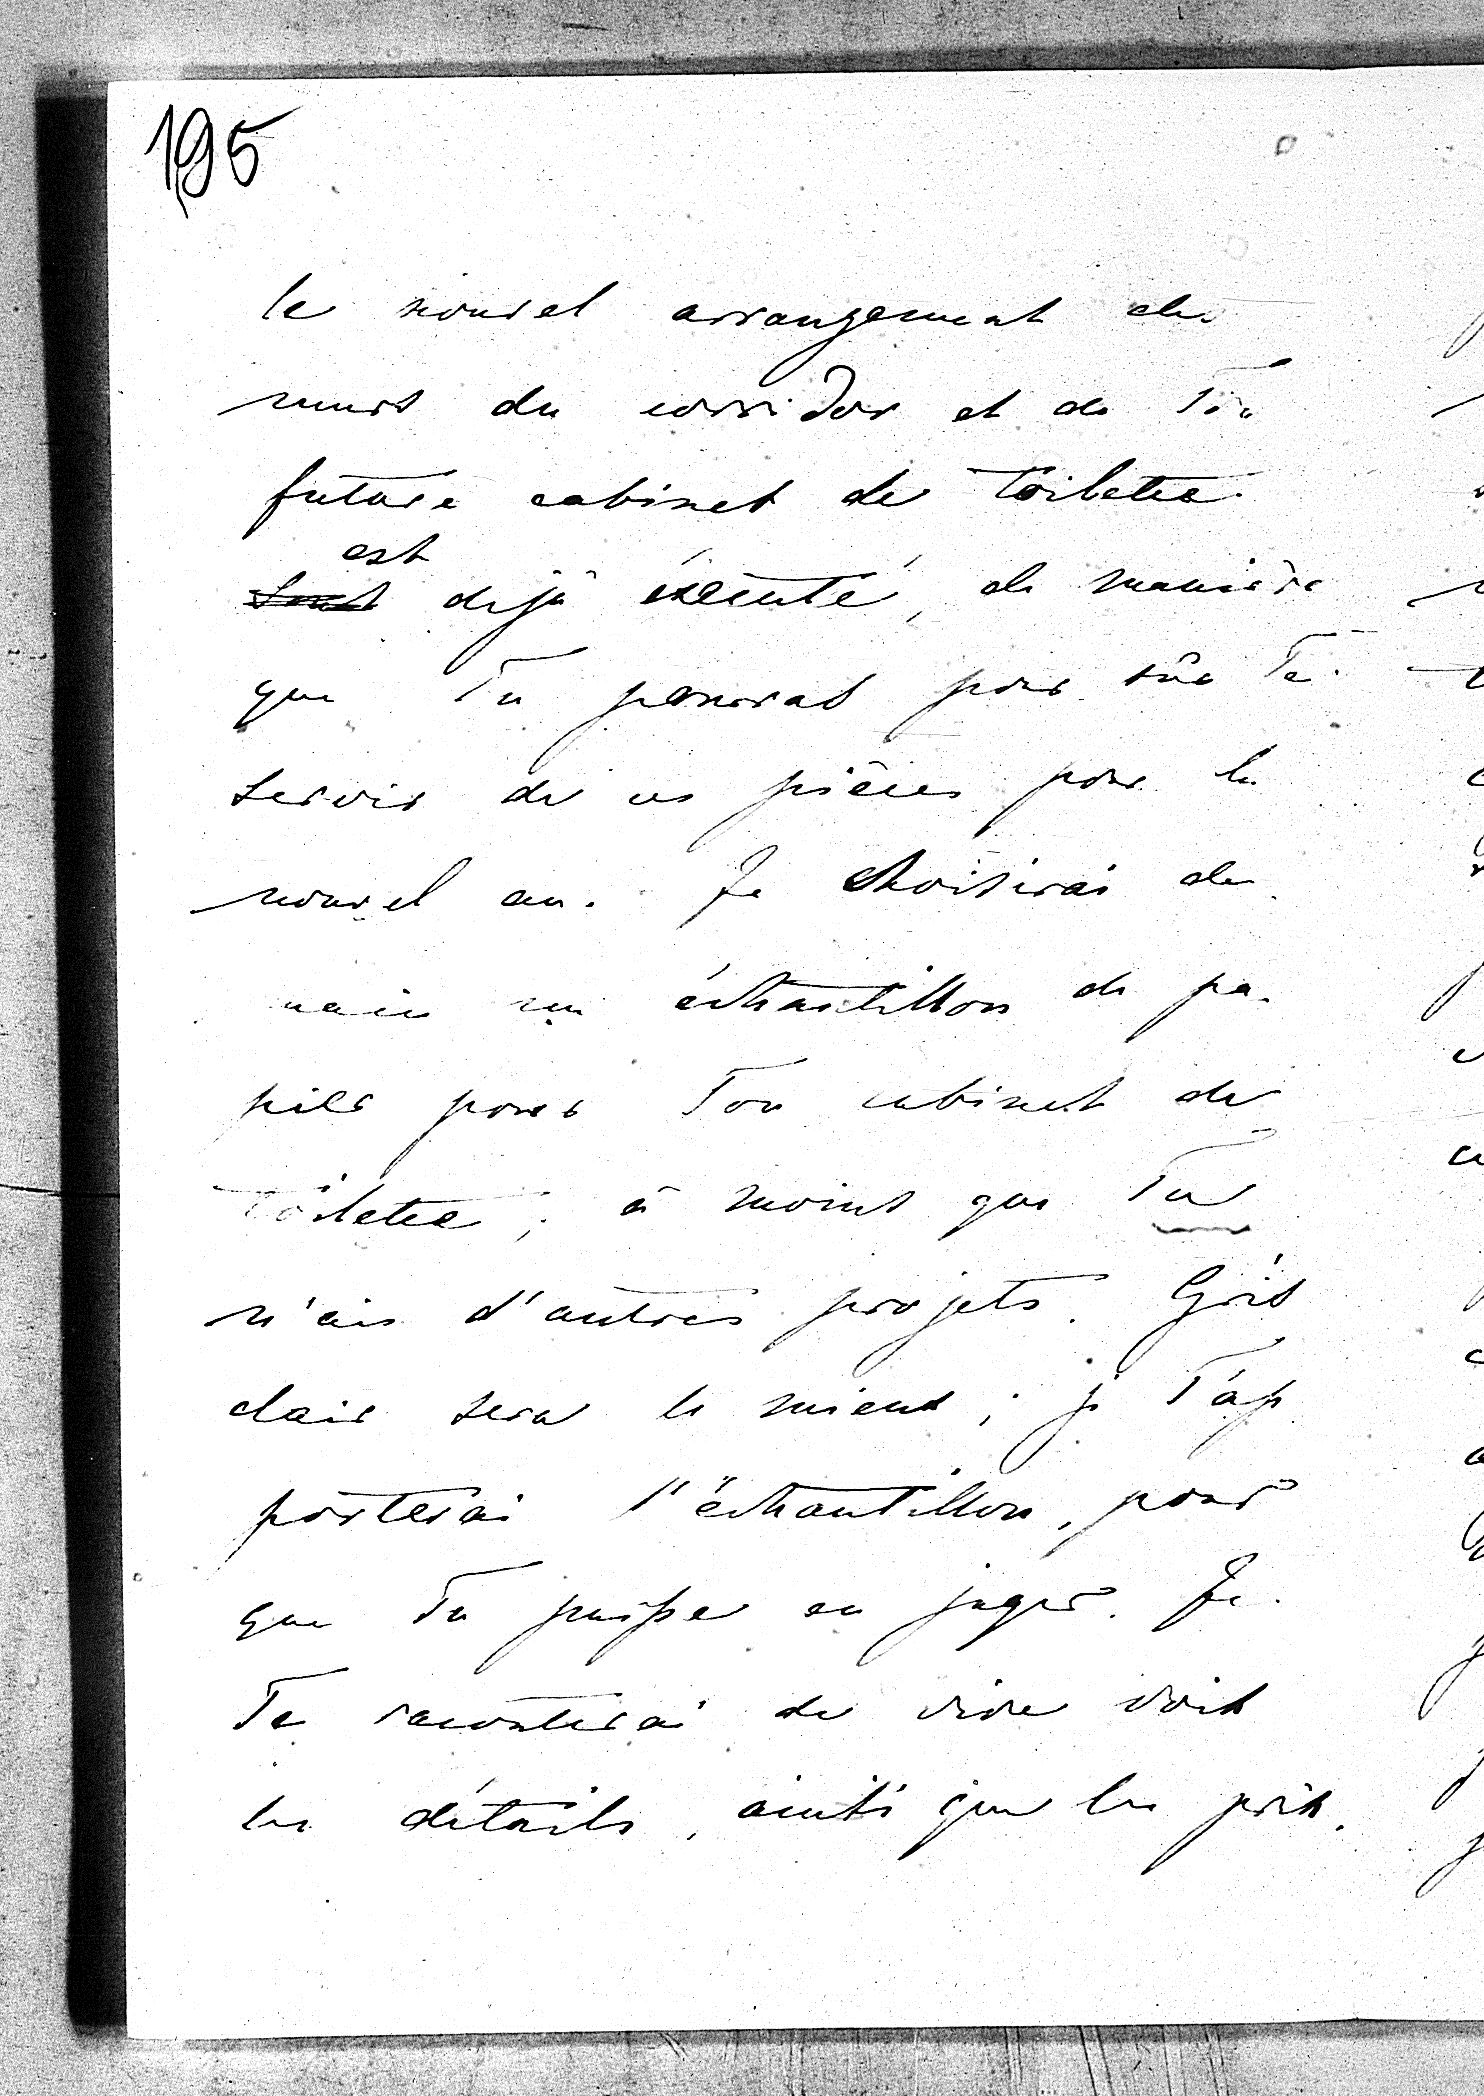 195
le nouvel arrangement des
murs du corridor et de Ton
future cabinet de toilette
est
sont déjà éxécuté, de manière
que Tu pourras pour sûr Te
servir de ces pièces pour le
nouvel an. Je choisirai de
main un échantillon de pa-
pier pour Ton cabinet de
toilette, à moins que Tu
n'ais d'autres projets. Gris
clair sera le mieux; je T'ap
porterai l'échantillon, pour
que Tu puisse en juger. Je
Te raconterai de vive voix
les détails, ainsi que les prix.